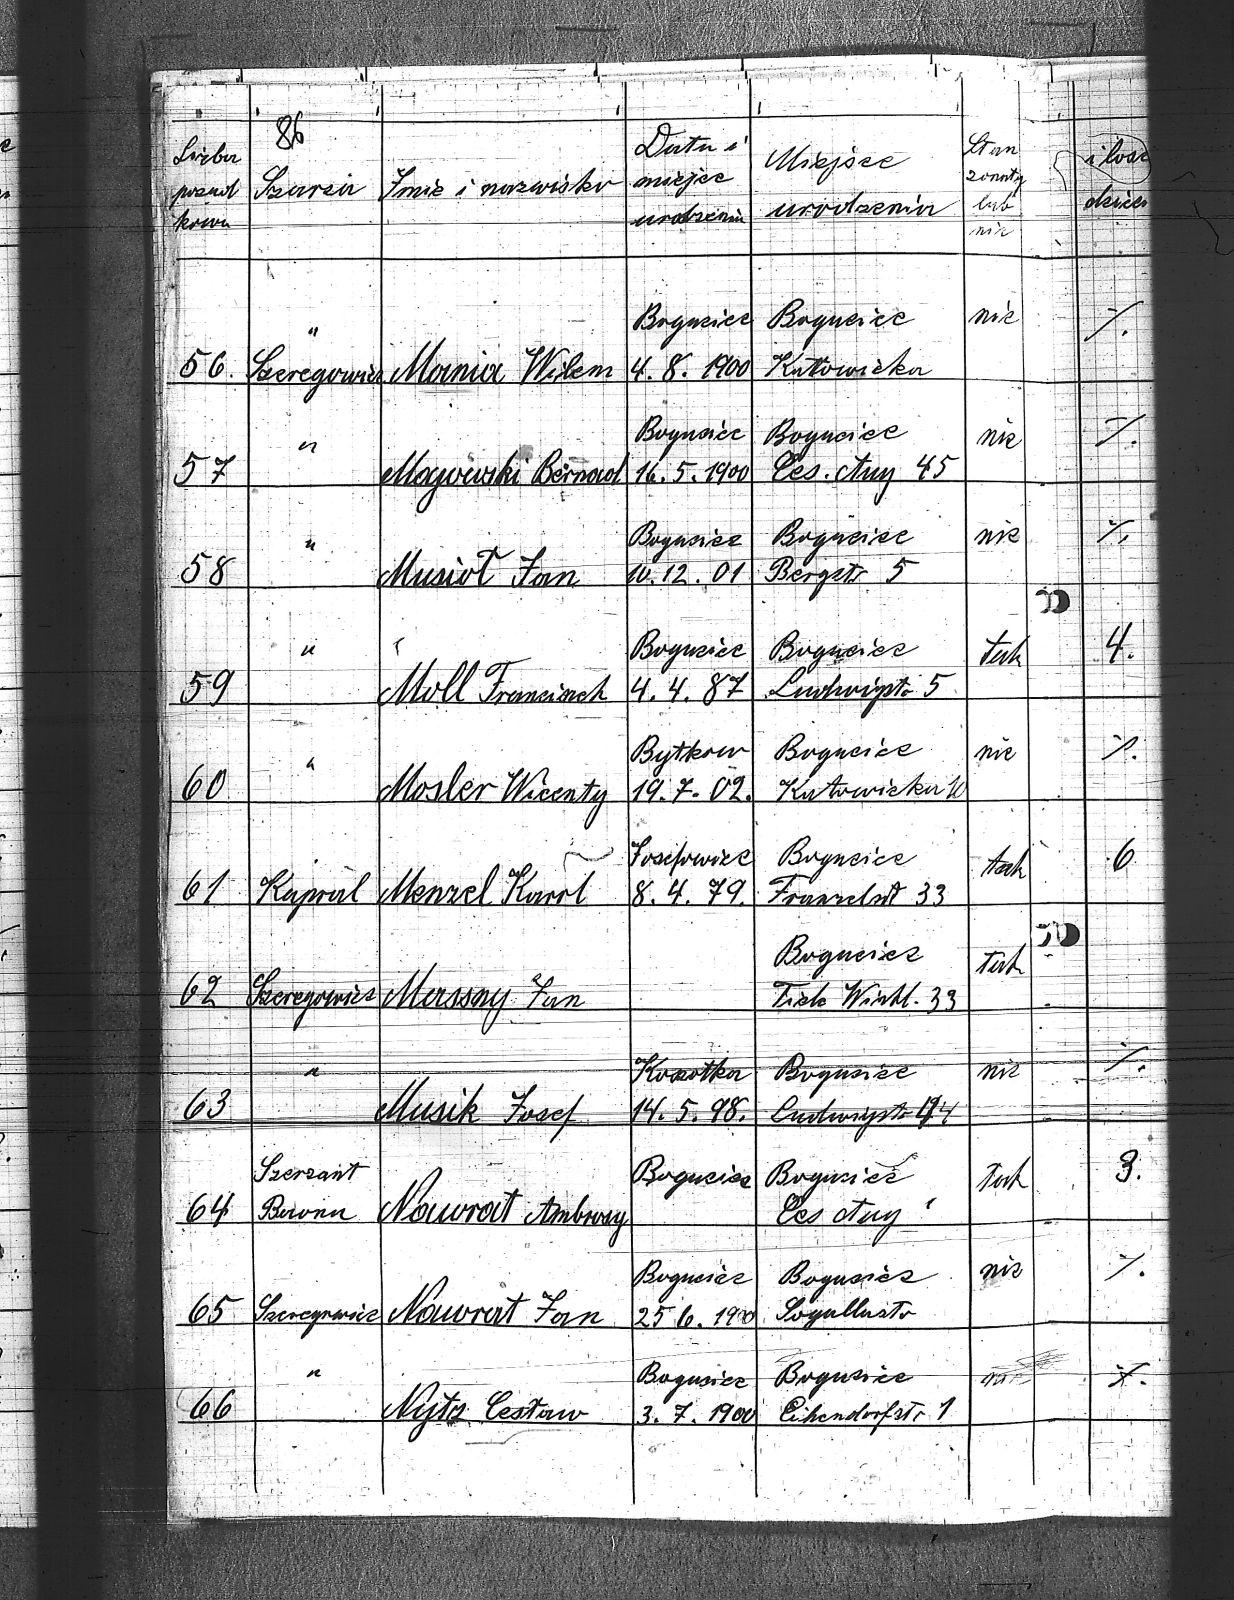 86
Liczba porząd kowa | Szarża | Imię i nazwisko | Data i miejsce urodzenia | Miejsce urodzenia | Stan żonaty lub nie | i ilość dzieci
56. | " Szeregowiec | Mania Wilem | Bogucice 4. 8. 1900 | Bogucice Katowicka | nie | %.
57 | " | Magowski Bernad | Bogucice 16. 5. 1900 | Bogucice Ces. Aug 45 | nie | %.
58 | " | Musioł Jan | Bogucice 10. 12. 01 | Bogucice Bergstr 5 | nie | %.
59 | " | Moll Francisek | Bogucice 4. 4. 87 | Bogucice Ludwigstr 5 | tak | 4.
60 | " | Mosler Wicenty | Bytkow 19. 7. 02. | Bogucice Katowicka 10 | nie | %.
61 | Kapral | Menzel Karol | Josefowiec 8. 4. 79. | Bogucice 33 | tak | 6
62 | Szeregowiec | Massny Jan | Bogucice 33 | tak
63 | " | Musik Josef | 14. 5. 98. | Bogucice Ludwigstr | nie | %.
64 | Szerzant | Nawrat Ambrozy | Bogucice | Bogucice Ces Aug | tak | 3.
65 | Szeregowiec | Nawrat Jan | Bogucice 25 6. 1900 | Bogucice | nie | %.
66 | " | Nyts Cestaw | Bogucice 3. 7. 1900 | Bogucice Eihendorfstr 1 | nie | %.